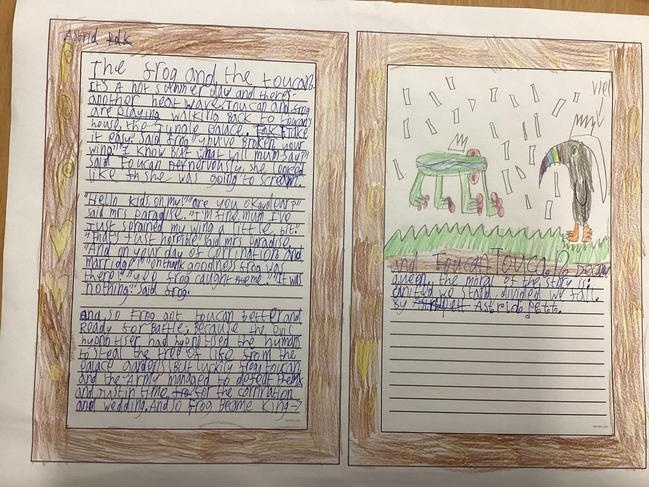 Astrid
The frog and the toucan
It's A hot summer day and there's
another heat wave. Toucan and frog
are playing walking back to toucan's
house, the jungle palace. Take
it easy said frog "you've broken your
wing" I know but what will mum say?"
said toucan nervously, she looked
like she was going to scream.
"Hello kids oh my!" "are you okay dear?"
said mrs paradise. "I'm fine mum I've
just sprained my wing a little bit."
"That's just horrible said mrs paradise.
"And on your day of corrination and
marriday" "oh thank goodness frog was
there" "yes frog caught me me." "It was
nothing" said frog.
And so frog got toucan better and
Ready for Battle, Because the evil
hypnotiser had hypnotised the humans
to steal the tree of life from the
palace gardens. But luckily frog toucan
and the army managed to defeat them
and just in time for the corrination
and wedding. And so frog Became king
and Toucan Became
queen, the moral of the story is:
united we stand, divided we fall.
By Astrid